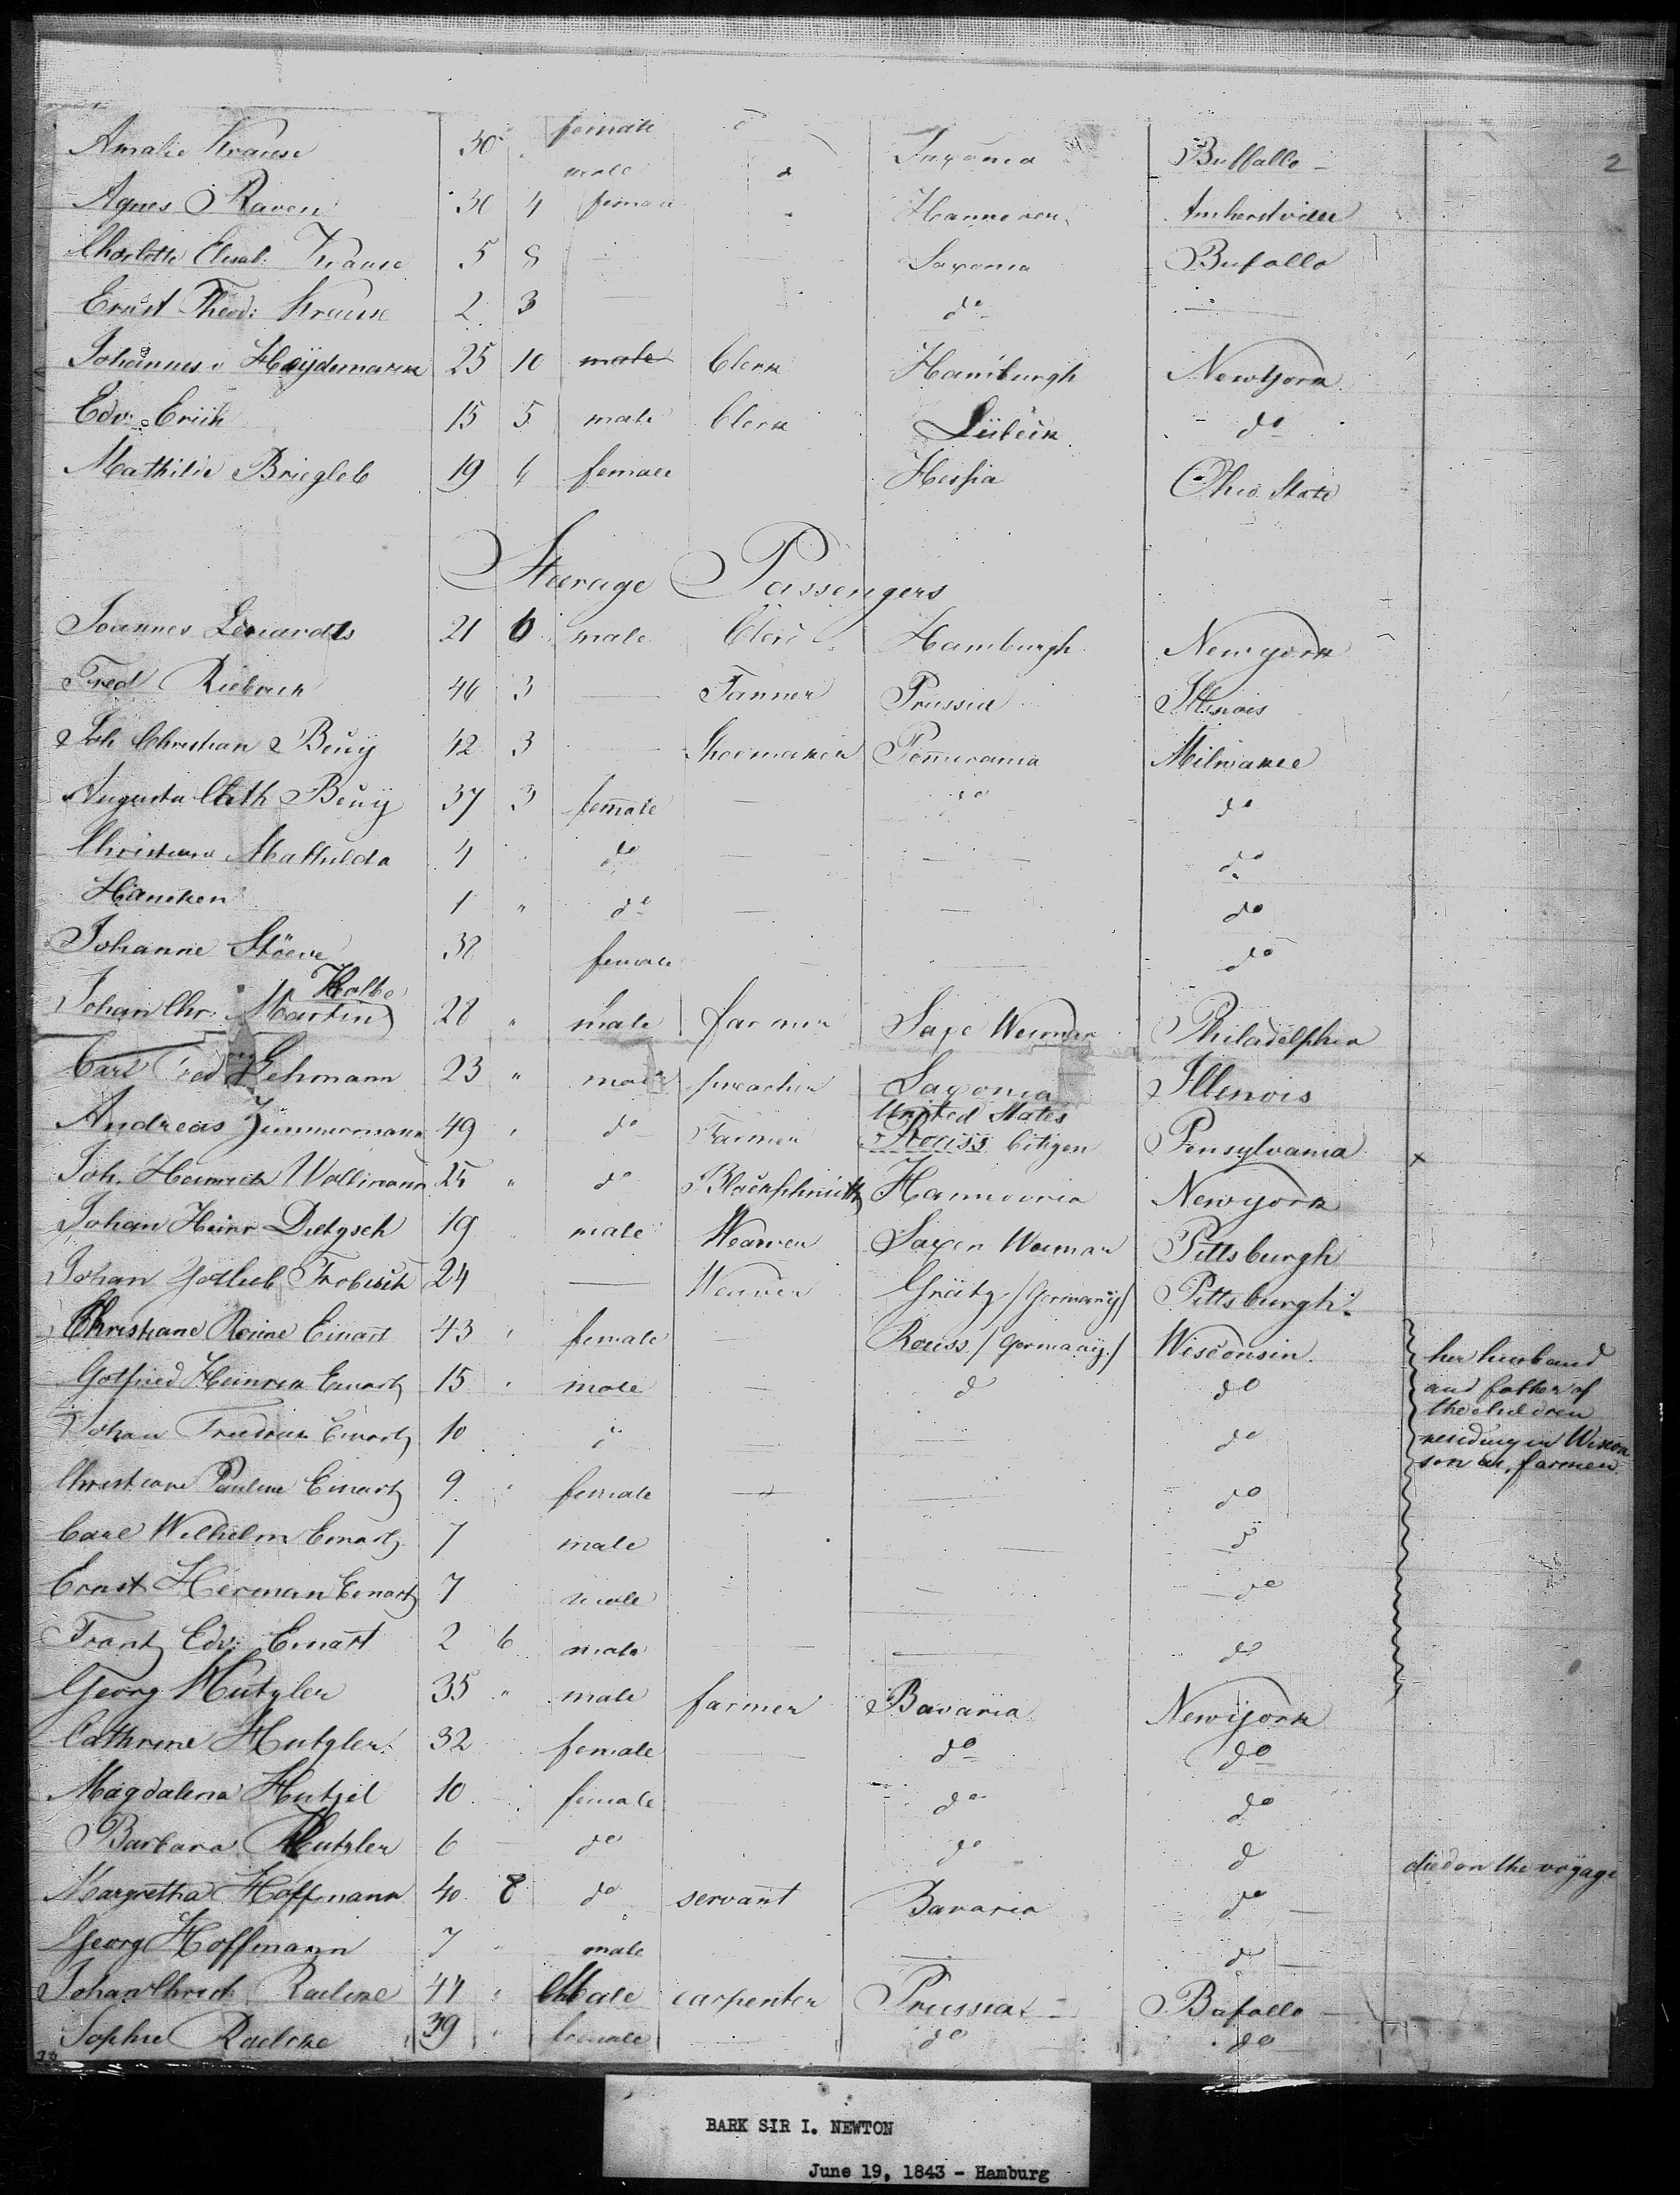 2
Amalie Krause 30 female Saxonia Buffallo
male
Agnes Raven 30 4 female Hannover Amherstville
Charlotte Elisab: Krause 5 8 Saxonia Bufallo
Ernst Theod: Krause 2 3 do
Johannes Heydemann 25 10 male Clerk Hamburgh Newyork
Edv: Erich 15 5 male Clerk Lübeck do
Mathilde Briegleb 19 4 female Hessia Ohio State
Stearage Passengers
Joannes Lenardts 21 6 male Clerc Hamburgh Newyork
Fred 46 3 Tanner Prussia Illinois
Joh Christian Beuy 42 3 Shoemaker Pommerania Milwakee
Augusta Cath Beuy 37 3 female do do
Christiane Mathilda 4 do do
Hancken 1 " do do
Johanne Stöeve 38 female do
Kolbe
Johan Chr. Martin 28 " male farmer Saxe Weimar Philadelphia
Carl Fred Lehmann 23 " male preacher Saxonia Illenois
United States
Andreas Zimmermann 49 do Farmer Reuss Citizen Pensylvania x
Joh. Heinrich Wollmann 25 " do Blackschmith Hannovria Newyork
Johan Heinr Dietzsch 19 male Weawer Saxen Weimar Pittsburgh
Johan Gotlieb Frobisch 24 Weaver Grätz / Germany / Pittsburgh
Christiane Rosine Einart 43 female Reuss / Germany / Wisconsin. her husband
Gotfried Heinrich Einartz 15 male do do and father of
the children
Johan Fredrick Einartz 10 do residing in Wiscon
son as farmer
Christiane Pauline Einartz 9 female do
Carl Wilhelm Einartz 7 male do
Ernst Herman Einartz 7 male do
Frantz Edv: Einart 2 6 male do
Georg Hutzler 35 " male farmer Bavaria Newyork
Cathrine Hutzler 32 female do do
Magdalena Hutzel 10 female do do
Barbara Hutzler 6 do do d died on the voyage
Margretha Hoffmann 40 8 do servant Bavaria do
Georg Hoffmann 7 male do
Johan Christ Radeke 44 Male carpenter Prussia Bufallo
Sophie Radeke 39 " female do do
BARK SIR I. NEWTON
June 19, 1843 - Hamburg